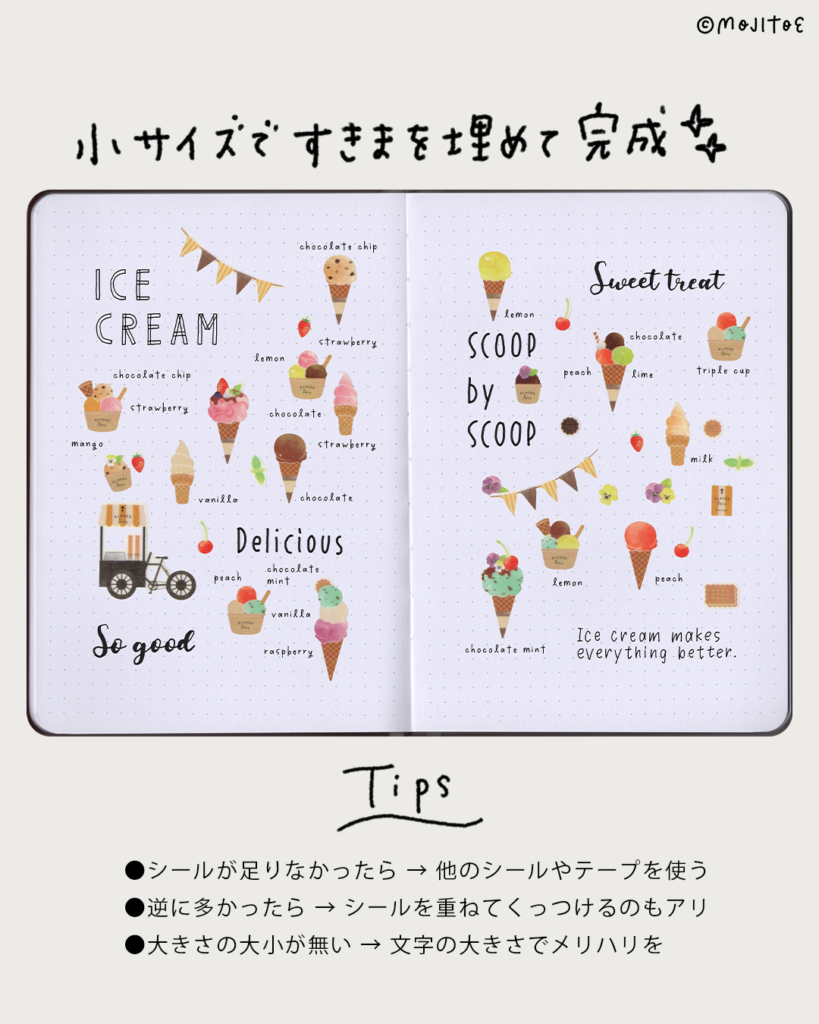 ©MOJITOE
小サイズですきまを埋めて完成
ICE
CREAM
chocolate chip
strawberry
lemon
chocolate chip
strawberry
mango
chocolate
strawberry
vanilla
chocolate
Delicious
peach
chocolate
mint
vanilla
raspberry
So good
lemon
Sweet treat
SCOOP
by
SCOOP
chocolate
peach
lime
triple cup
milk
lemon
peach
chocolate mint
Ice cream makes
everything better.
Tips
●シールが足りなかったら → 他のシールやテープを使う
●逆に多かったら → シールを重ねてくっつけるのもアリ
●大きさの大小が無い → 文字の大きさでメリハリを